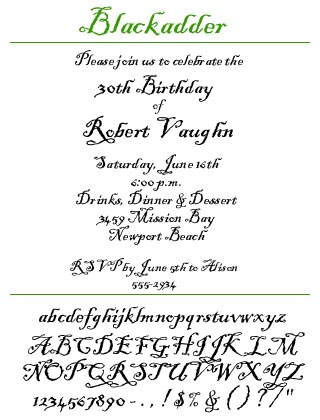 Blackadder
Please join us to celebrate the
30th Birthday
of
Robert Vaughn
Saturday, June 16th
6:00 p.m.
Drinks, Dinner & Dessert
3459 Mission Bay
Newport Beach
RSVP by June 5th to Alison
555-2934
abcdefghijklmnopqrstuvwxyz
ABCDEFGHIJKLM
NOPQRSTUVWXYZ
1234567890 - . , ! $ % & ( ) ? / "